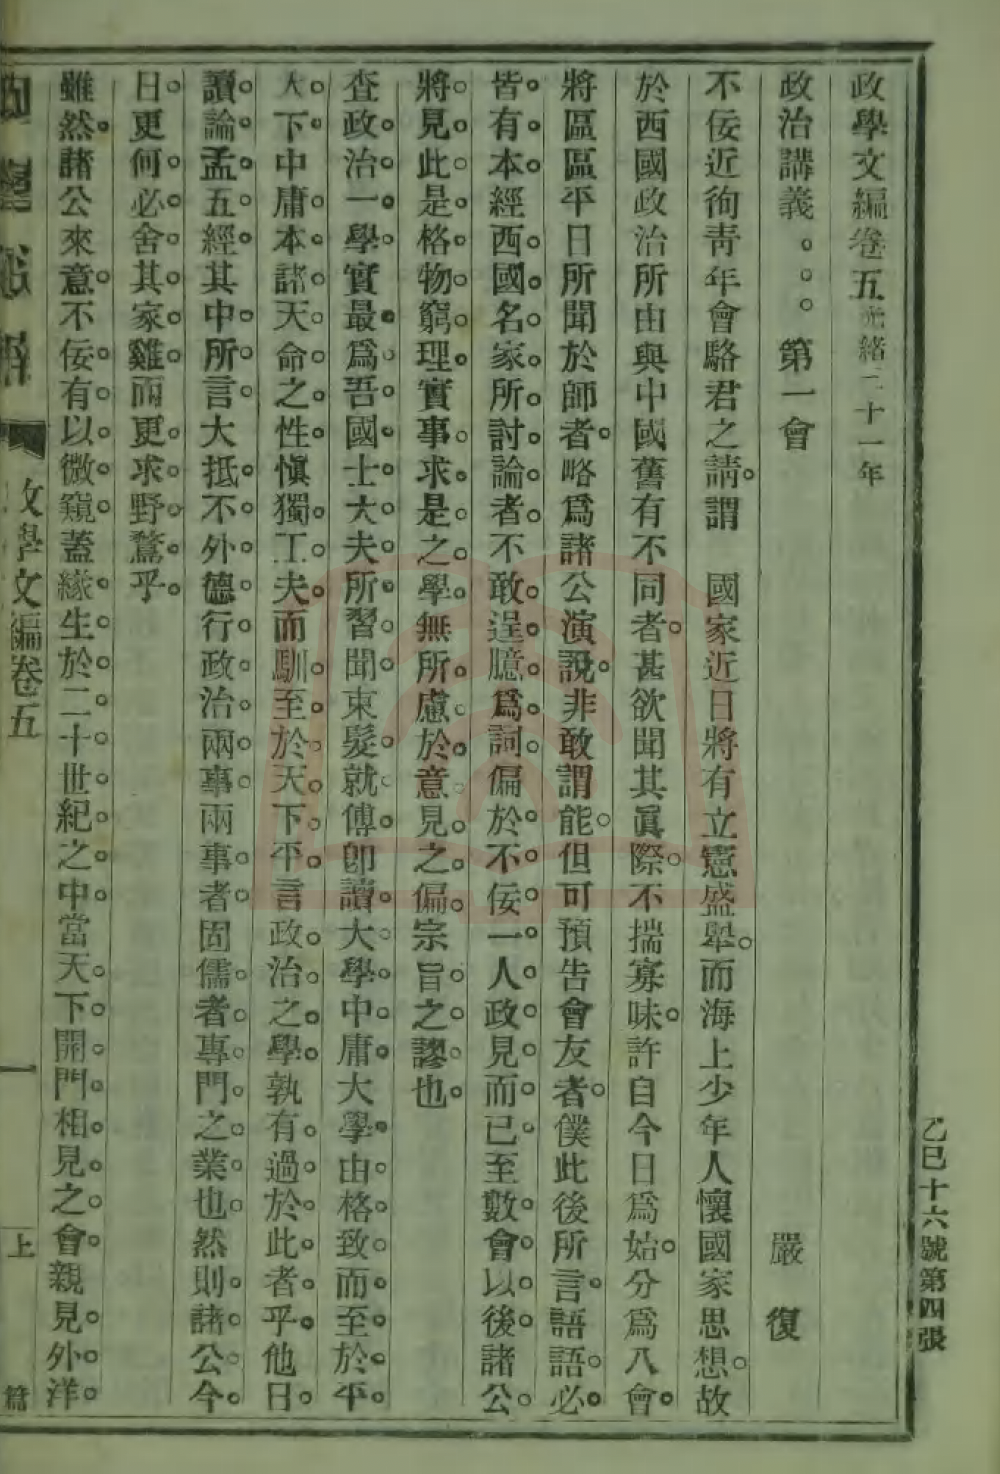 政學文編卷五光緒三十一年
政治講義。。。第一會 嚴復
不佞近徇靑年會駱君之請。謂 國家近日將有立憲盛舉。而海上少年人懷國家思想。故
於西國政治所由與中國舊有不同者。甚欲聞其眞際。不揣寡味。許自今日爲始。分爲八會。
將區區平日所聞於師者。略爲諸公演說。非敢謂能。但可預告會友者。僕此後所言。語語。必。
皆有本。經西國名家所討論者。不敢逞臆爲詞。偏於不佞一人政見而已。至數會以後。諸公。
將見此是格物窮理實事求是之學。無所慮於意見之偏。宗旨之謬也。
查政治一學。實最爲吾國士大夫所習聞。束髮就傅。卽讀大學中庸。大學由格致而至於平。
天下。中庸本諸天命之性。愼獨工夫。而馴至於天下平。言政治之學。孰有過於此者乎。他日。
讀論孟五經。其中所言。大抵不外德行政治兩事。兩事者。固儒者專門之業也。然則諸公今。
日。更何必舍其家雞。而更求野鶩乎。
雖然。諸公來意。不佞有以微窺。蓋緣生於二十世紀之中。當天下開門相見之會。親見外洋。
政學文編卷五
一
上
篇
乙巳十六號第四張